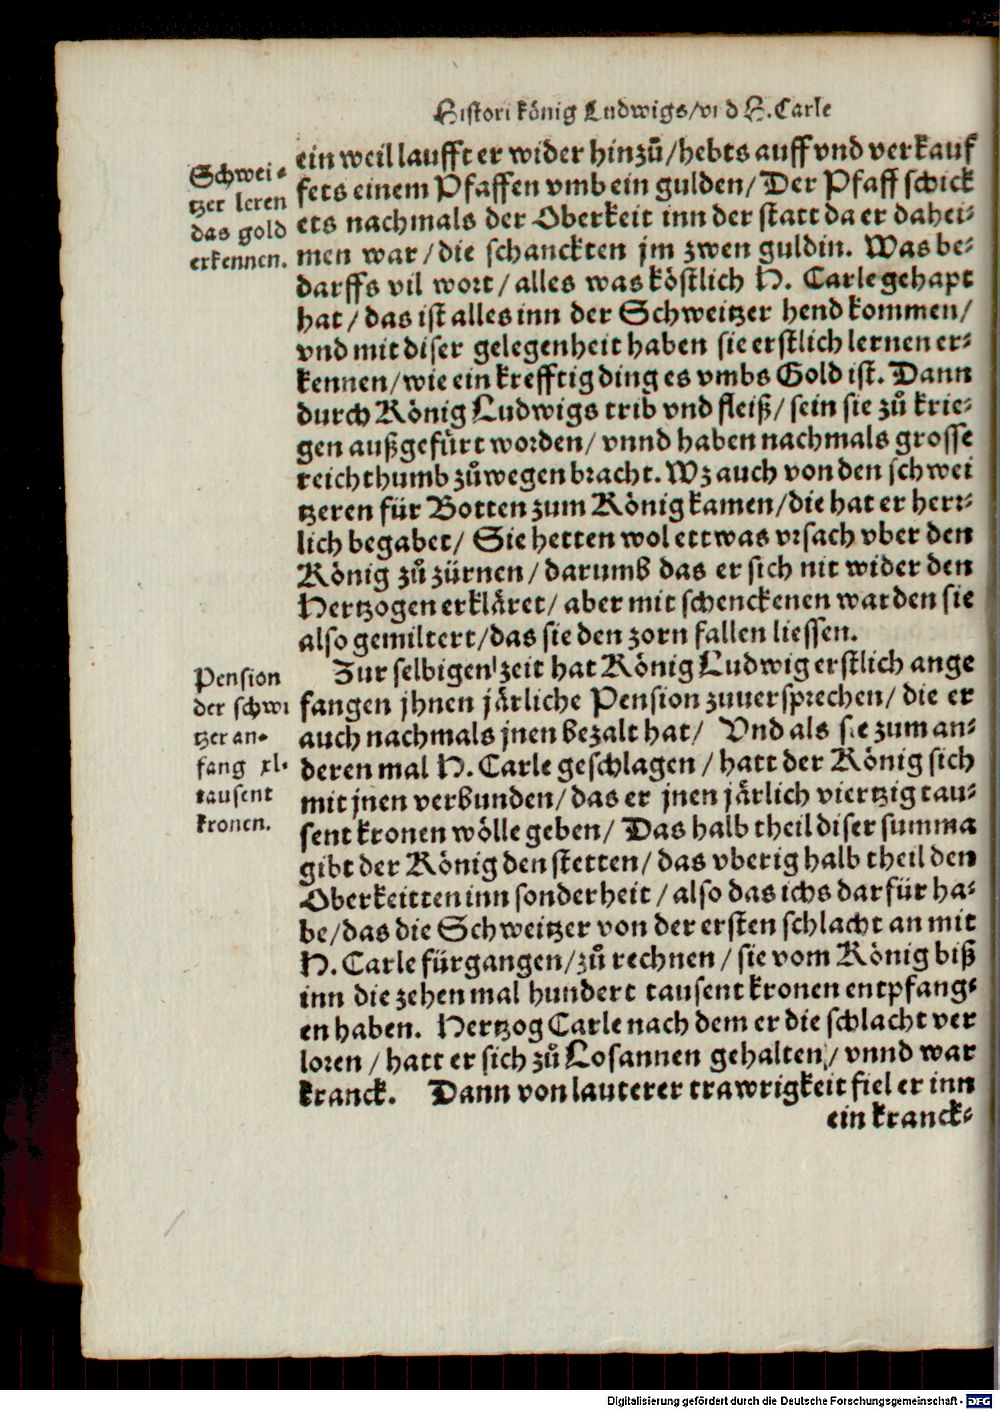 Histori könig Ludwigs/vnd H. Carle
ein weil laufft er wider hinzů/hebts auff vnd verkauf
fets einem Pfaffen vmb ein gulden/ Der Pfaff schick
ets nachmals der Oberkeit inn der statt da er dahei-
men war/die schanckten jm zwen guldin. Was be-
darffs vil wort/alles was köstlich H. Carle gehapt
hat/das ist alles inn der Schweitzer hend kommen/
vnd mit diser gelegenheit haben sie erstlich lernen er-
kennen/wie ein krefftig ding es vmbs Gold ist. Dann
durch König Ludwigs trib vnd fleiß/sein sie zů krie-
gen außgefürt worden/vnnd haben nachmals grosse
reichthumb zůwegen bracht. Wz auch von den schwei
tzeren für Botten zum König kamen/die hat er herr-
lich begabet/ Sie hetten wol ettwas vrsach vber den
König zů zürnen/darumb das er sich nit wider den
Hertzogen erkläret/aber mit schenckenen warden sie
also gemiltert/das sie den zorn fallen liessen.
Schwei-
tzer leren
das gold
erkennen.
Zur selbigen zeit hat König Ludwig erstlich ange
fangen jhnen järliche Pension zuuersprechen/die er
auch nachmals jnen bezalt hat/ Vnd als sie zum an-
deren mal H. Carle geschlagen/hatt der König sich
mit jnen verbunden/das er jnen järlich viertzig tau-
sent kronen wölle geben/ Das halb theil diser summa
gibt der König den stetten/das vberig halb theil den
Oberkeitten inn sonderheit/also das ichs darfür ha-
be/das die Schweitzer von der ersten schlacht an mit
H. Carle fürgangen/zů rechnen/sie vom König biß
inn die zehen mal hundert tausent kronen entpfang-
en haben. Hertzog Carle nach dem er die schlacht ver
loren/hatt er sich zů Losannen gehalten/vnnd war
kranck. Dann von lauterer trawrigkeit fiel er inn
ein kranck-
Pension
der schwi
tzer an-
fang xl.
tausent
kronen.
Digitalisierung gefördert durch die Deutsche Forschungsgemeinschaft - DFG